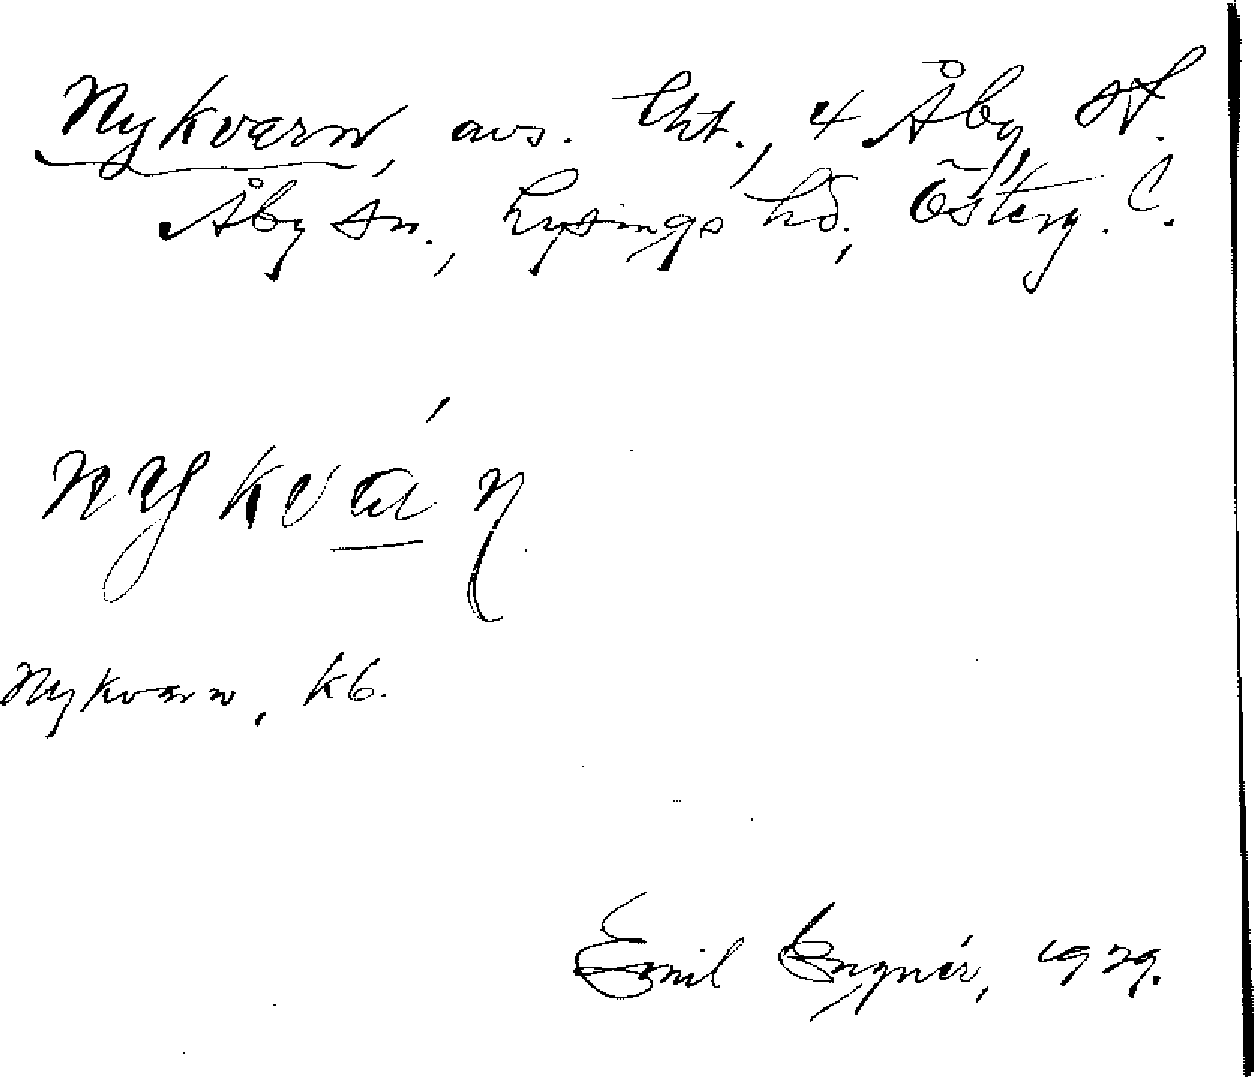 Nykvarn, avs. lht., 4 Åby St.
Åby sn., Lysings hd., Österg. l.
nykván
Nykvarn, kb.
Emil 1929.